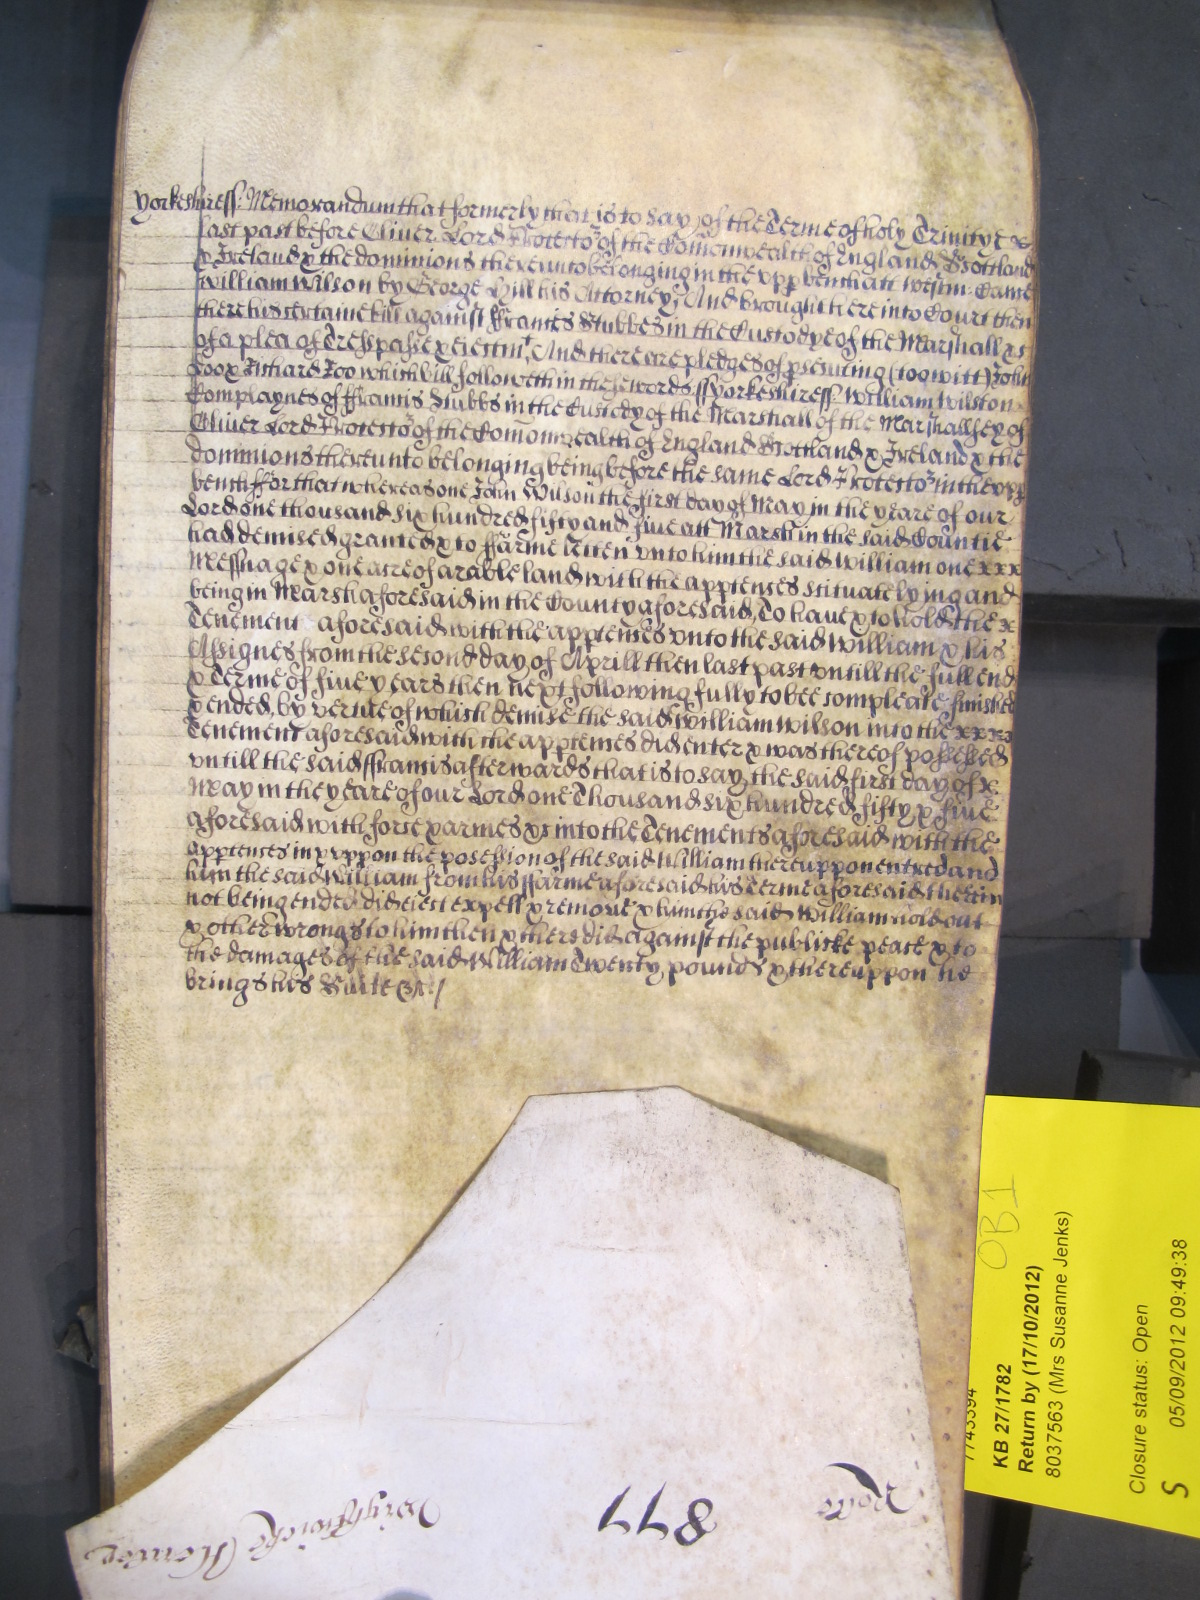 Yorkeshiress: Memorandum that formerly that is to say of the Terme of holy Trinitye x
last past before Oliver Lord Protector of the Comonwealth of England Scottland
x Ireland x the dominions thereunto belonging in the upp bench att Westm: Came
William Wilson by George Hill his Attorney, And brought here into Court then
there his certaine bill against ffrancis Stubbes in the Custodye of the Marshall xc
of a plea of Trespasse x eiectmt, And there are pledges of psecuting (to witt) John
Doo x Richard Roo which bill followeth in these words ss Yorkeshiress William Wilson
Complaynes of ffrancis Stubbs in the Custody of the Marshall of the Marshallsey of
Oliver Lord Protector of the Comonwealth of England Scottland x Ireland x the
dominions thereunto belonging being before the same Lord Protector in the upp
bench ffor that whereas one John Wilson the first day of May in the yeare of our
Lord one thousand six hundred fifty and five att Marsh in the said Countie
had demised granted x to ffarme letten unto him the said William one xxx
Messuage x one acre of arable land with the apptences scituate lying and
being in Marsh aforesaid in the County aforesaid, To have x to hold the x
Tenement aforesaid with the apptences unto the said William x his
Assignes from the second day of Aprill then last past untill the full end
x terme of five yeares then next following fully to bee compleate finished
x ended, by vertue of which demise the said William Wilson into the xxxx
Tenement aforesaid with the apptences did enter x was thereof possessed
untill the said ffrancis afterwards that is to say the said first day of x
May in the yeare of our Lord one Thousand six hundred fifty x five
aforesaid with force x armes xc into the Tenements aforesaid with the
apptences in x uppon the posession of the said William thereuppon entred and
him the said William from his ffarme aforesaid his Terme aforesaid therein
not being ended did eiect expell x remove x him the said William hold out
x other wrongs to him then x there did against the publicke peace x to
the damages of the said William Twenty pounds x thereuppon he
brings his Suite xc /
OB1
7743394
KB 27/1782
Return by (17/10/2012)
8037563 (Mrs Susanne Jenks)
Closure status: Open
05/09/2012 09:49:38
S
877